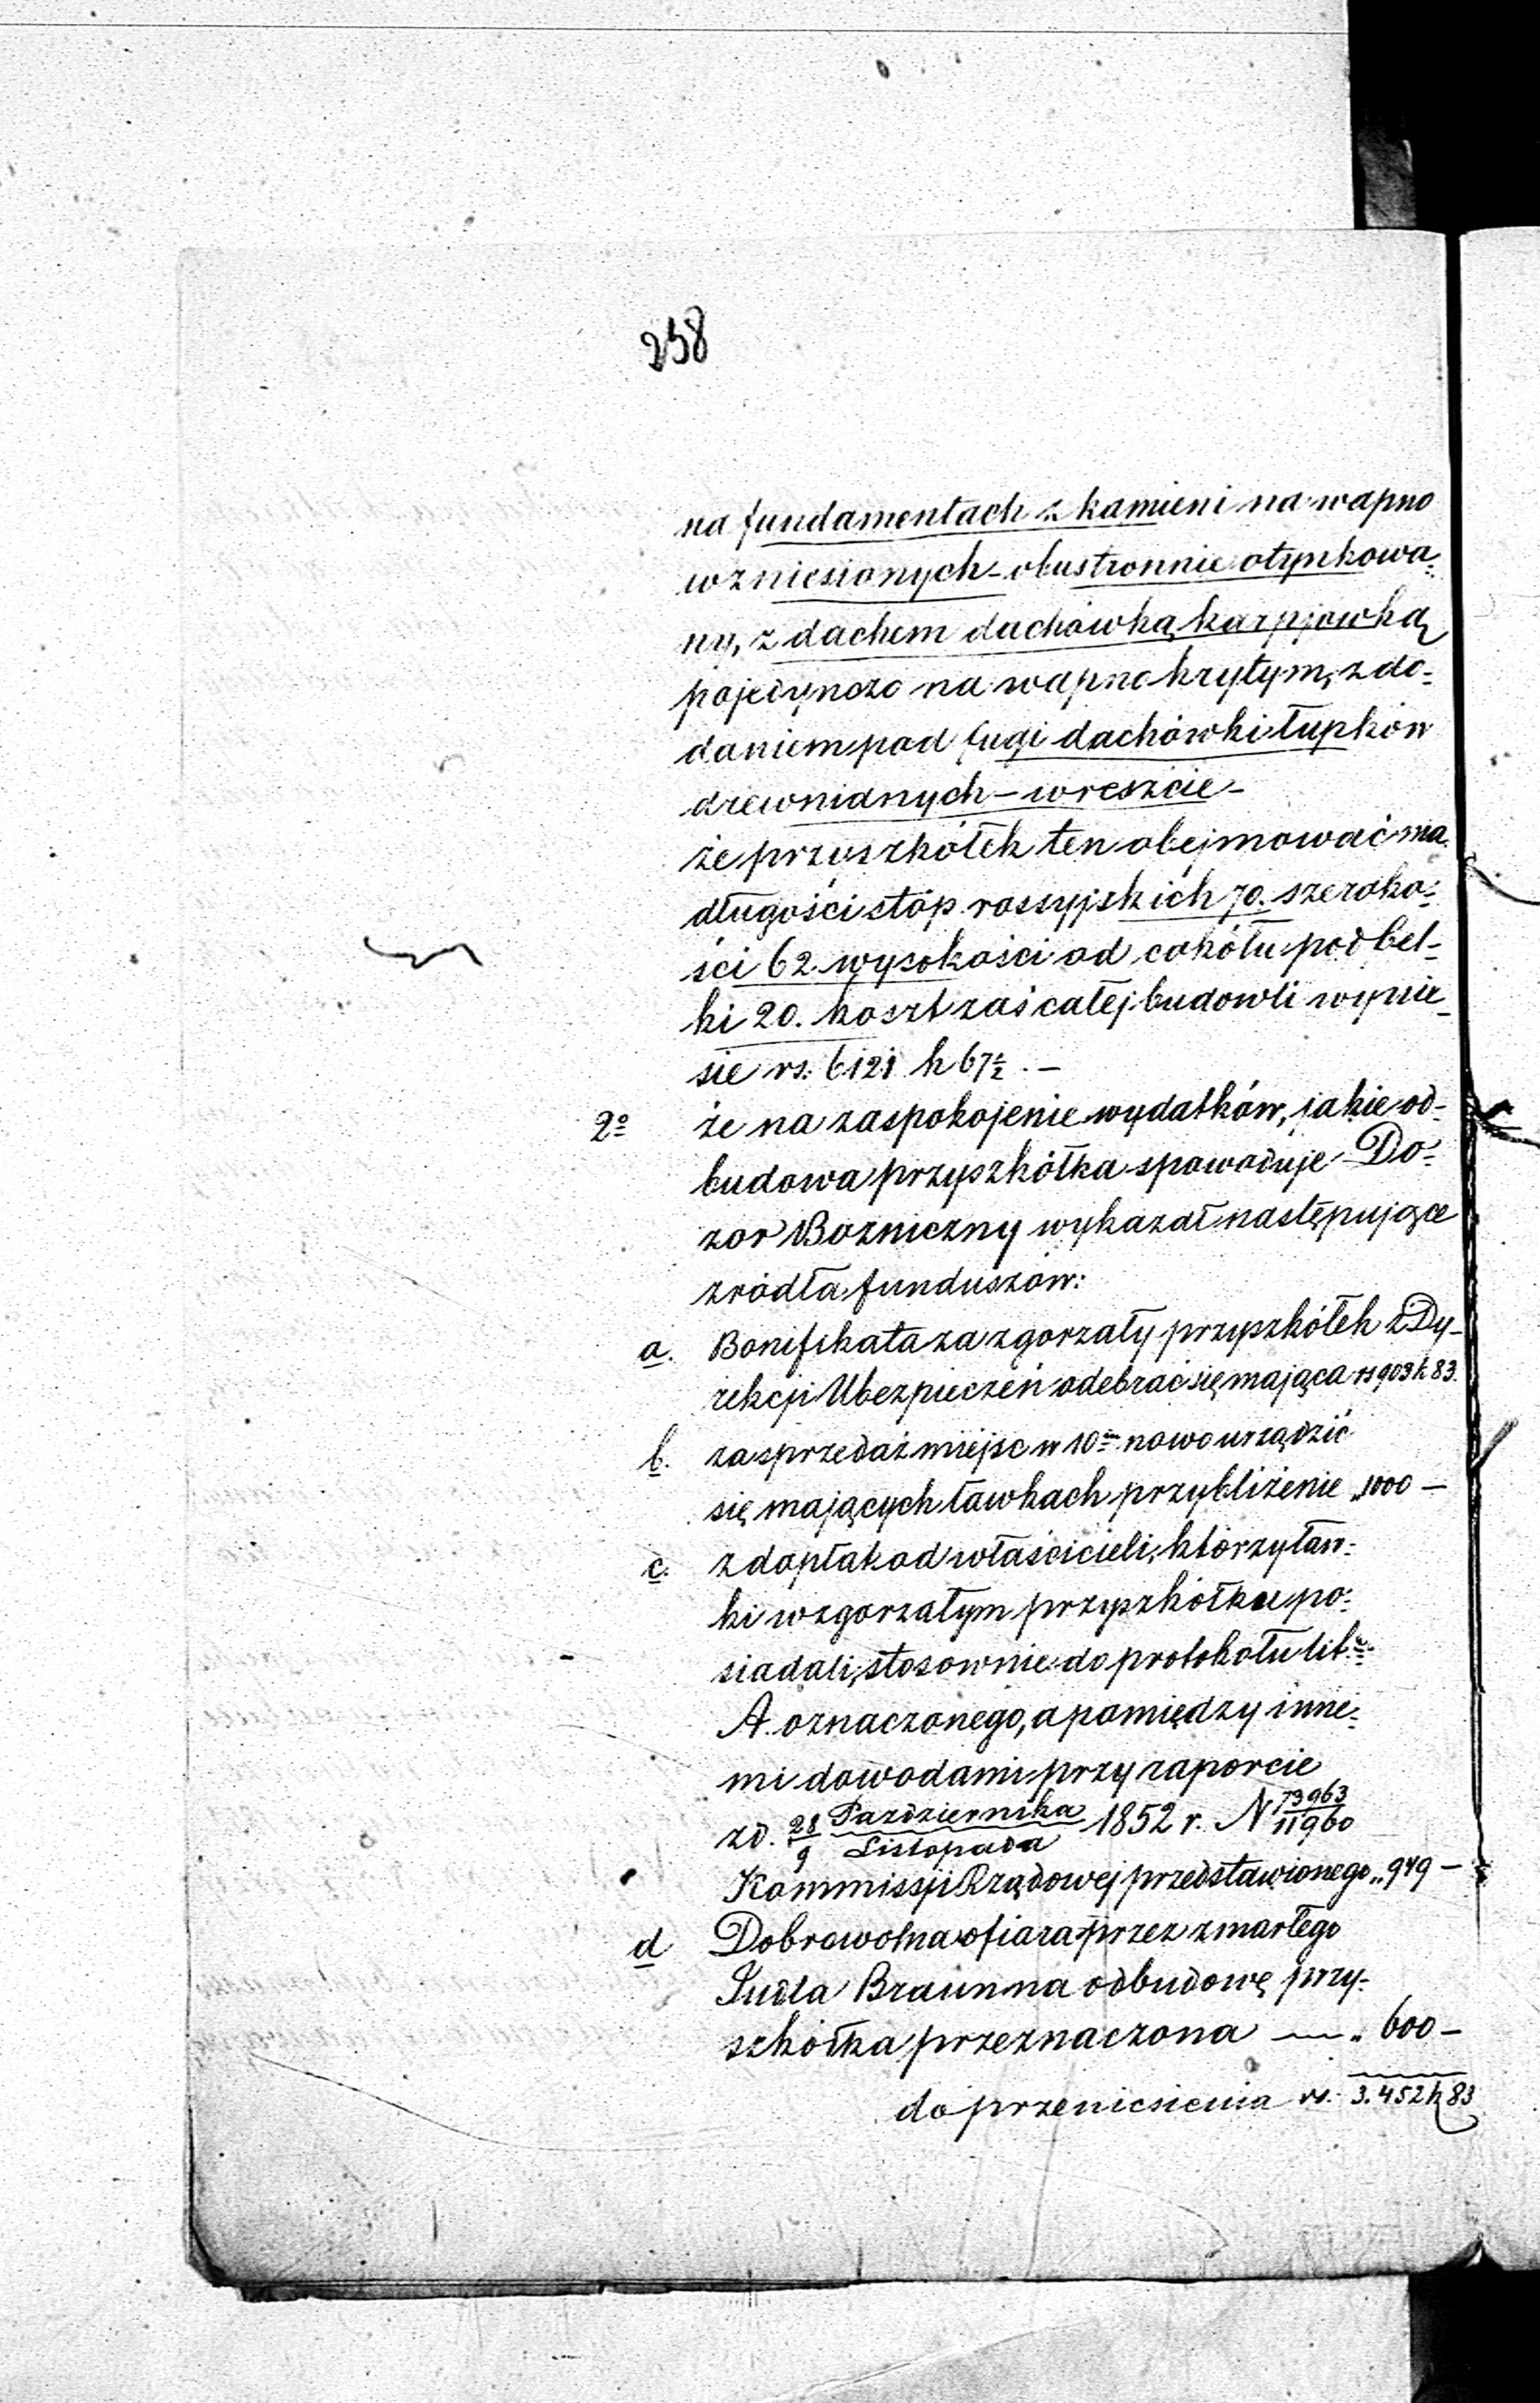 258
na fundamentach z kamieni na wapno
wzniesionych - obustronnie otynkowa=
ny, z dachem dachówką karpjowką
pojedynczo na wapno krytym, z do=
daniem pod fugi dachówki łupków
drewnianych - wreszcie -
że przyszkółek ten obejmować ma
długości stóp rossyjskich 70. szeroko=
ści 62. wysokości od cokółu pod bel=
ki 20. koszt zaś całej budowli wynie=
sie rs. 6121 k 67½. -
2º że na zaspokojenie wydatków, jakie od=
budowa przyszkółka spowoduje Do=
zór Bozniczny wykazał następujące
źródła funduszów:
a. Bonifikata za zgorzały przyszkółek z Dy=
rekcji Ubezpieczeń odebrać się mająca rs 903 k 83.
b. za sprzedaż miejsc w 10iu nowo urządzić
się mających ławkach przybliżenie „ 1000 -
c. z dopłat od właścicieli, którzy ław=
ki w zgorzałym przyszkółku po=
siadali, stosownie do protokołu lit.
A. oznaczonego, a pomiędzy inne=
mi dowodami przy raporcie
z d. 28/9 Października/Listopada 1852 r. N 73963/11960
Kommissji Rządowej przedstawionego „ 949 -
d Dobrowolna ofiara przez zmarłego
Judla Braun na odbudowę przy=
szkółka przeznaczona — „ 600 -
do przeniesienia rs. 3.452 k 83